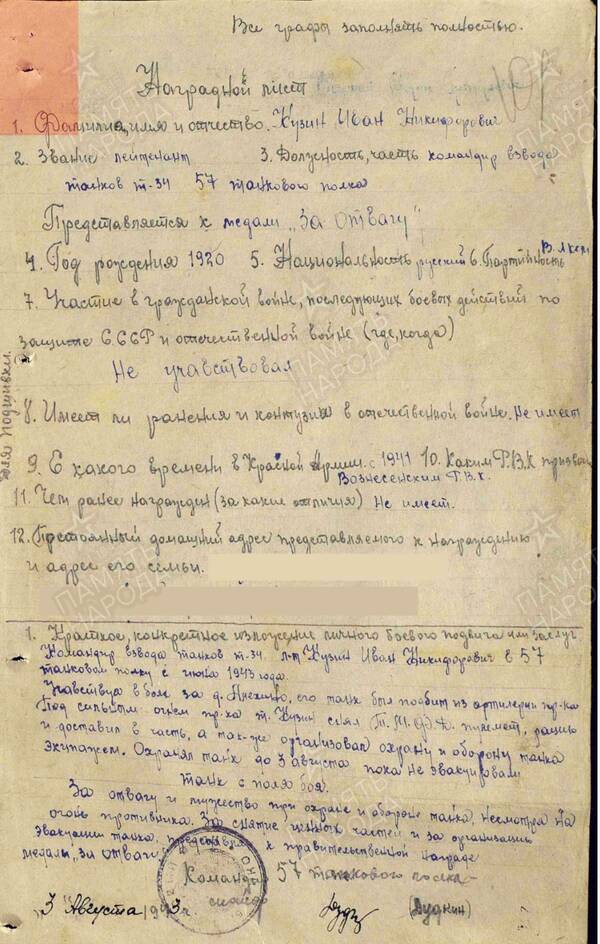 Все графы заполнять полностью.
Наградной лист
1. Фамилия, имя и отчество. Кузин Иван Никифорович
2. Звание лейтенант 3. Должность, часть командир взвода
танков т-34 57 танкового полка
Представляется к медали „За отвагу"
4. Год рождения 1920 5. Национальность русский 6. Партийность
7. Участие в гражданской войне, последующих боевых действий по
защите СССР и отечественной войне (где, когда)
Не учавствовал
8. Имеет ли ранения и контузии в отечественной войне. Не имеет
9. С какого времени в Красной Армии. с 1941 10. Каким Р.В.К призван
Вознесенским Р.В.К.
11. Чем ранее награжден (за какие отличия) Не имеет.
12. Постоянный домашний адрес представляемого к награждению
и адрес его семьи.
Для подшивки.
1. Краткое, конкретное изложение личного боевого подвига или заслуг
Командир взвода танков т-34 л-т Кузин Иван Никифорович в 57
танковом полку с июня 1943 года.
Учавствуя в боях за д. его танк был подбит из артилерии пр-ка
Под сильным огнем пр-ка т. Кузин снял пулемет, рацию
и доставил в часть, а так-же организовал охрану и оборону танка
экипажем. Охранял танк до 3 августа пока не эвакуировали
танк с поля боя.
За отвагу и мужество при охране и обороне танка, несмотря на
огонь противника. За снятие ценных частей и за организацию
эвакуации танка, к правительственной награде
медали „за отвагу"
Командир 57 танкового полка
3 Августа 1943 г. (Дудкин)
ПАМЯТЬ НАРОДА